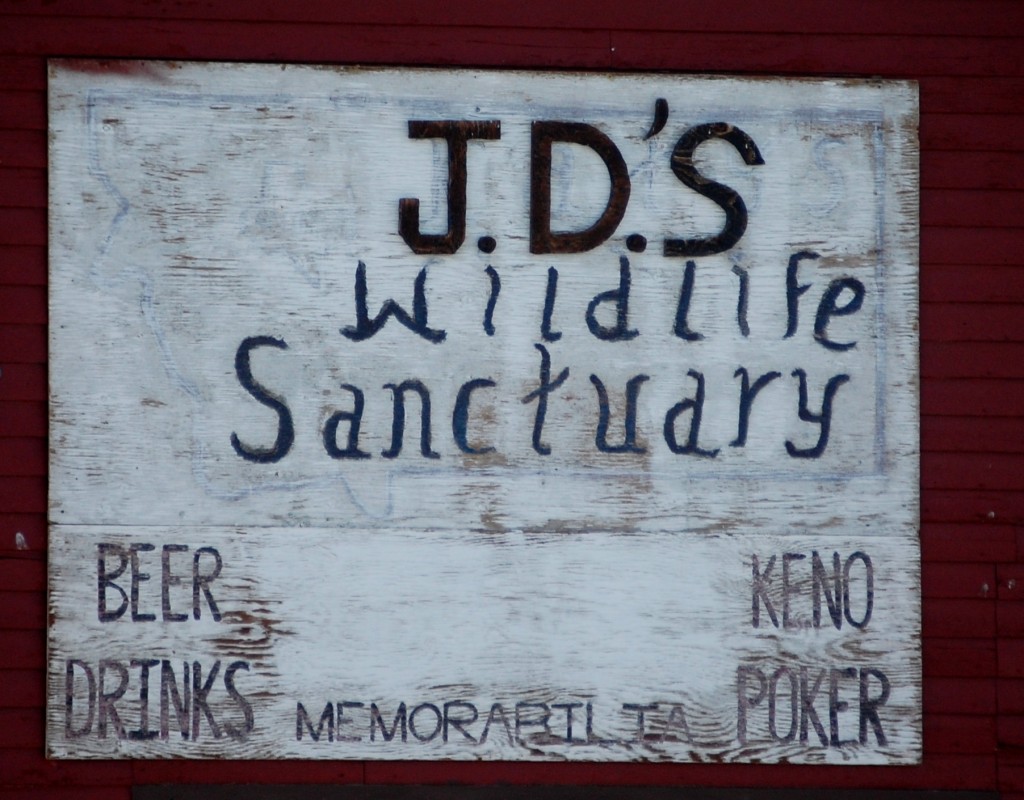 J.D.'S
Wildlife
Sanctuary
BEER
KENO
DRINKS
MEMORABILIA
POKER